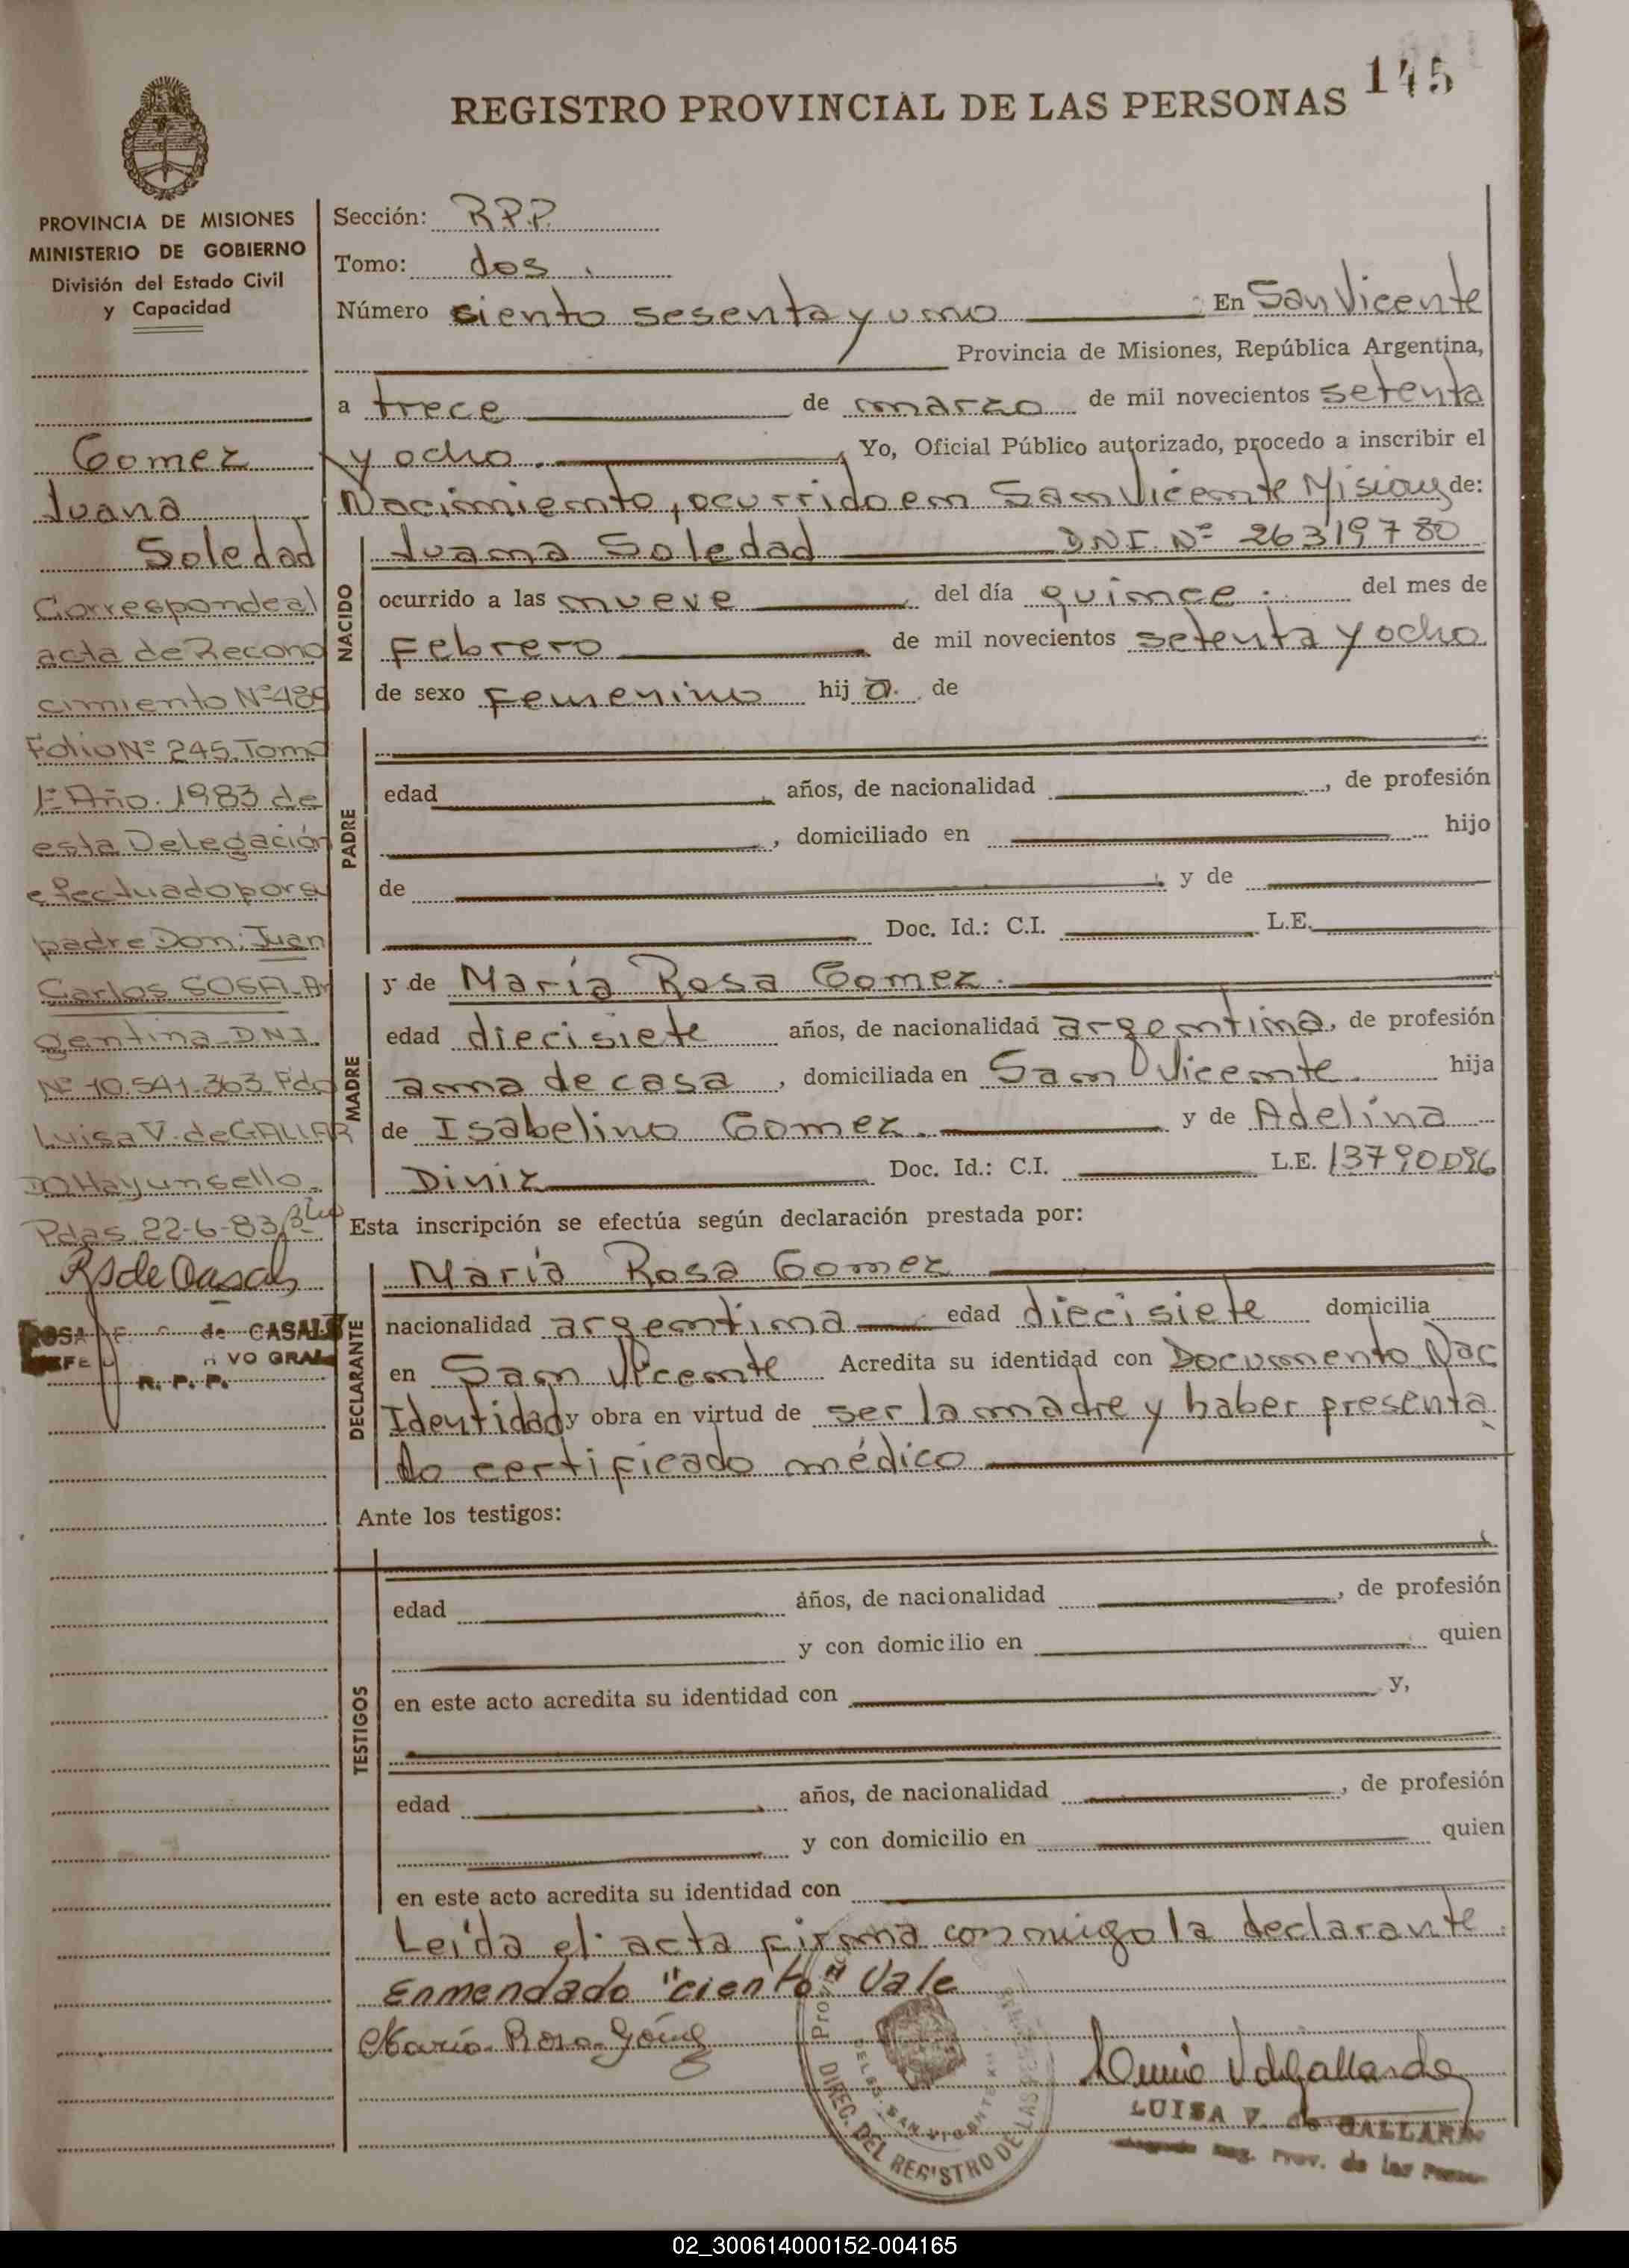 145
REGISTRO PROVINCIAL DE LAS PERSONAS
PROVINCIA DE MISIONES
MINISTERIO DE GOBIERNO
División del Estado Civil
y Capacidad
Gomez
Juana
Soledad
Corresponde al
acta de Recono
cimiento Nº 489
Folio Nº 245. Tomo
1º Año. 1983 de
esta Delegación
efectuado por su
padre Don: Juan
Carlos SOSA_Ar
gentina_DNI.
Nº 10.541.363. Fdo
Luisa V. de GALLAR
DO Hay un sello.
Pdas. 22-6-83
ROSA de CASALS
VO GRAL
R. P. P.
Sección: R.P.P.
Tomo: dos.
Número siento sesenta y uno En San Vicente
Provincia de Misiones, República Argentina,
a trece de marzo de mil novecientos setenta
y ocho. Yo, Oficial Público autorizado, procedo a inscribir el
Nacimiento, ocurrido en San Vicente Misiones de:
NACIDO
Juana Soledad DNI. Nº 26319780
ocurrido a las nueve del día quince. del mes de
Febrero de mil novecientos setenta y ocho
de sexo Femenino hij a. de
PADRE
edad , años, de nacionalidad , de profesión
, domiciliado en hijo
de y de
Doc. Id.: C.I. L.E.
MADRE
y de María Rosa Gomez.
edad diecisiete años, de nacionalidad argentina, de profesión
ama de casa , domiciliada en San Vicente. hija
de Isabelino Gomez. y de Adelina
Diniz Doc. Id.: C.I. L.E. 13790096
Esta inscripción se efectúa según declaración prestada por:
DECLARANTE
María Rosa Gomez
nacionalidad argentina edad diecisiete domicilia
en San Vicente Acredita su identidad con Documento Nac
Identidad y obra en virtud de ser la madre y haber presenta
do certificado médico
Ante los testigos:
TESTIGOS
edad años, de nacionalidad , de profesión
y con domicilio en quien
en este acto acredita su identidad con y,
edad años, de nacionalidad , de profesión
y con domicilio en quien
en este acto acredita su identidad con
Leída el acta firma conmigo la declarante.
Enmendado "ciento" Vale
María Rosa Gómez
DIREC. DEL REGISTRO DE LAS
LUISA V. de GALLARDO
Reg. Prov. de las
02_300614000152-004165